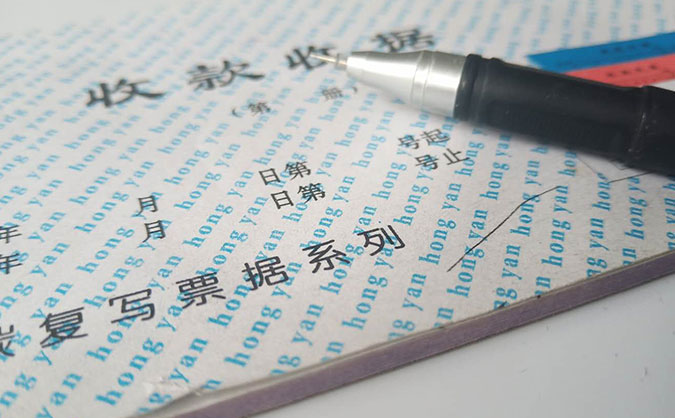 收款收据
（第 册）
年 月 日第 号起
年 月 日第 号止
炭复写票据系列
hong yan hong yan hong yan